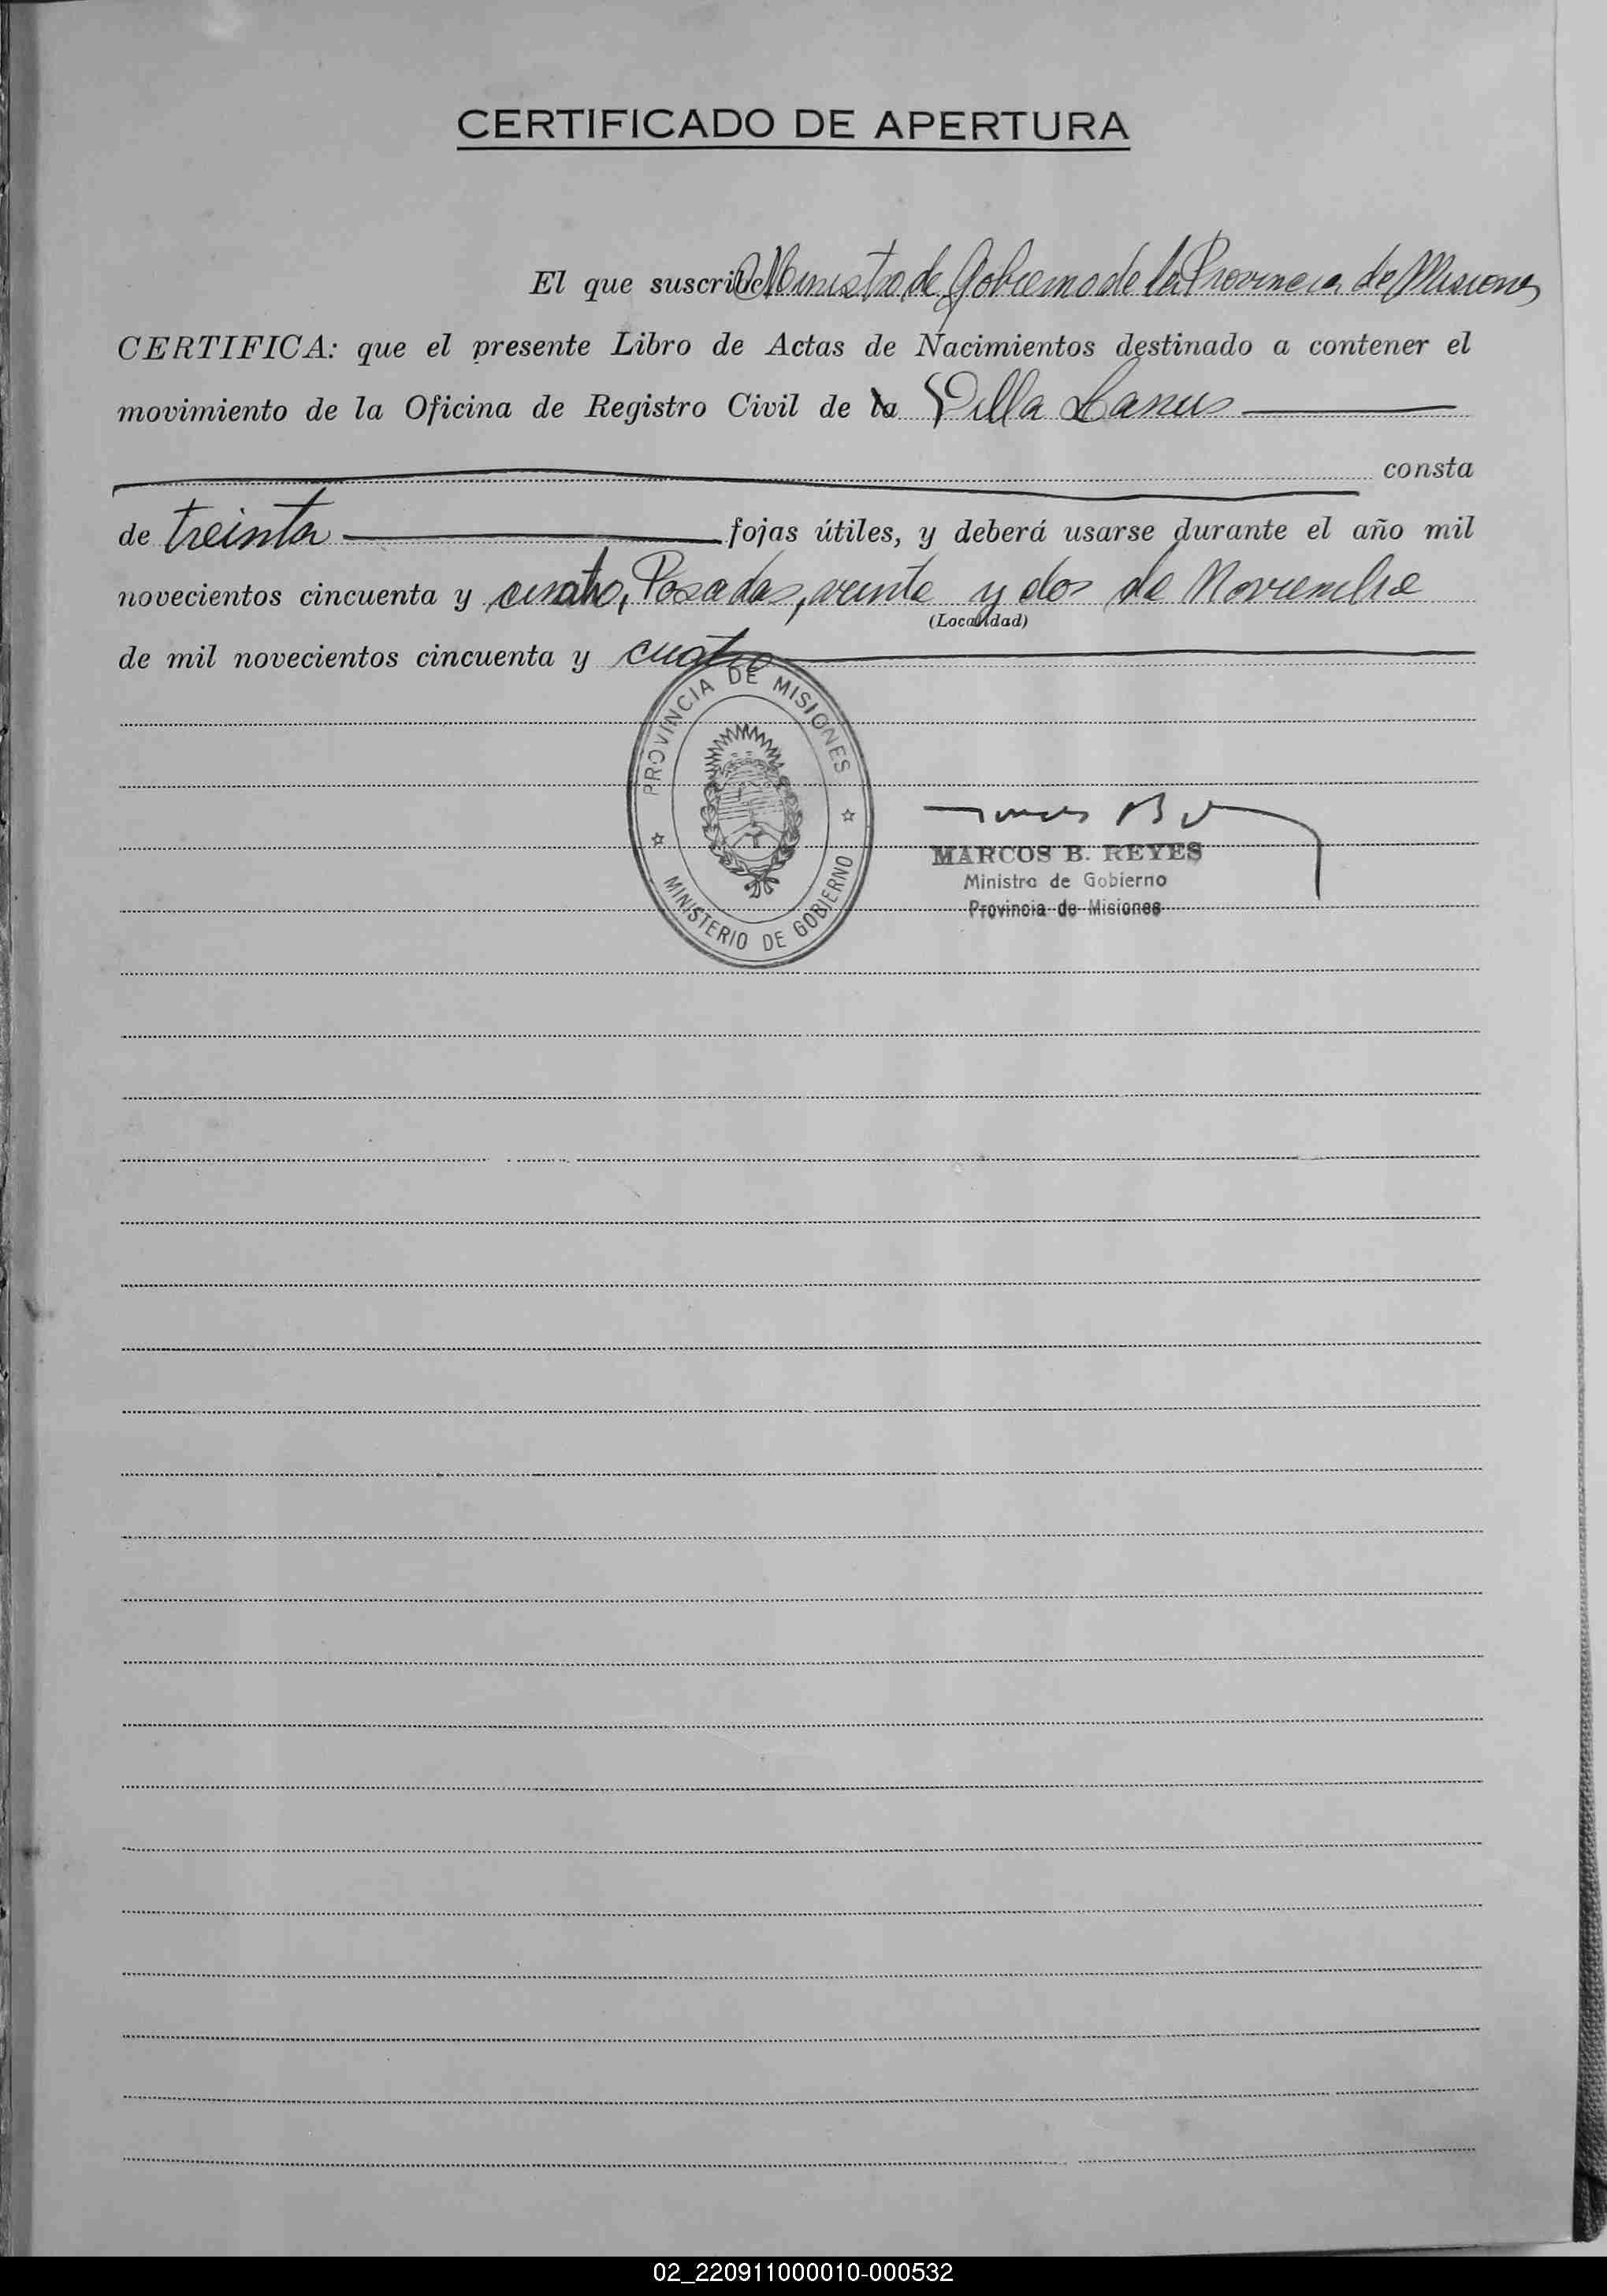 CERTIFICADO DE APERTURA
El que suscribe Ministro de Gobierno de la Provincia de Misiones
CERTIFICA: que el presente Libro de Actas de Nacimientos destinado a contener el
movimiento de la Oficina de Registro Civil de la Villa Lanus
consta
de treinta fojas útiles, y deberá usarse durante el año mil
novecientos cincuenta y cuatro, Posadas, veinte y dos de Noviembre
(Localidad)
de mil novecientos cincuenta y cuatro
PROVINCIA DE MISIONES
MINISTERIO DE GOBIERNO
MARCOS B. REYES
Ministro de Gobierno
Provincia de Misiones
02_220911000010-000532